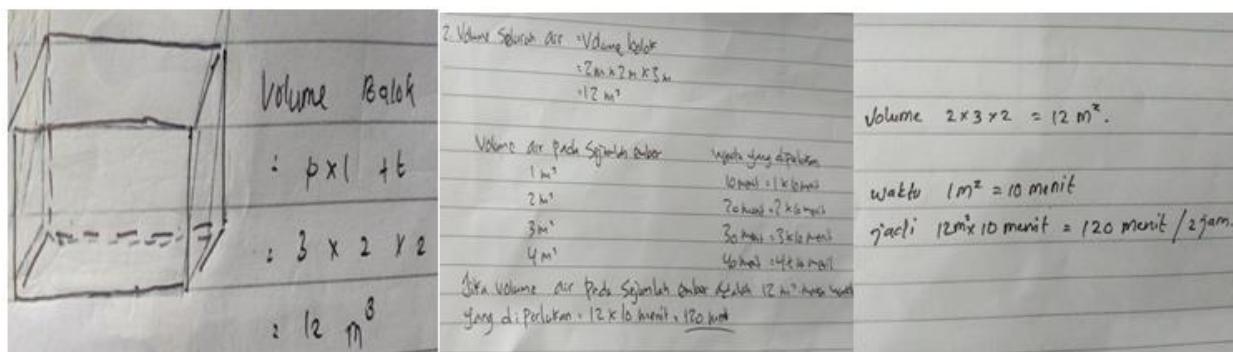 Volume Balok
= p x l + t
= 3 x 2 x 2
= 12 m³
2. Volume seluruh air = Volume balok
= 2m x 2m x 3m
= 12 m³
Volume air pada sejumlah ember
waktu yang diperlukan
1 m³
10 menit = 1 x 10 menit
2 m³
20 menit = 2 x 10 menit
3 m³
30 menit = 3 x 10 menit
4 m³
40 menit = 4 x 10 menit
Jika volume air pada sejumlah ember adalah 12 m³ maka waktu
yang diperlukan = 12 x 10 menit = 120 menit
Volume 2 x 3 x 2 = 12 m².
waktu 1m² = 10 menit
jadi 12m² x 10 menit = 120 menit / 2 jam.